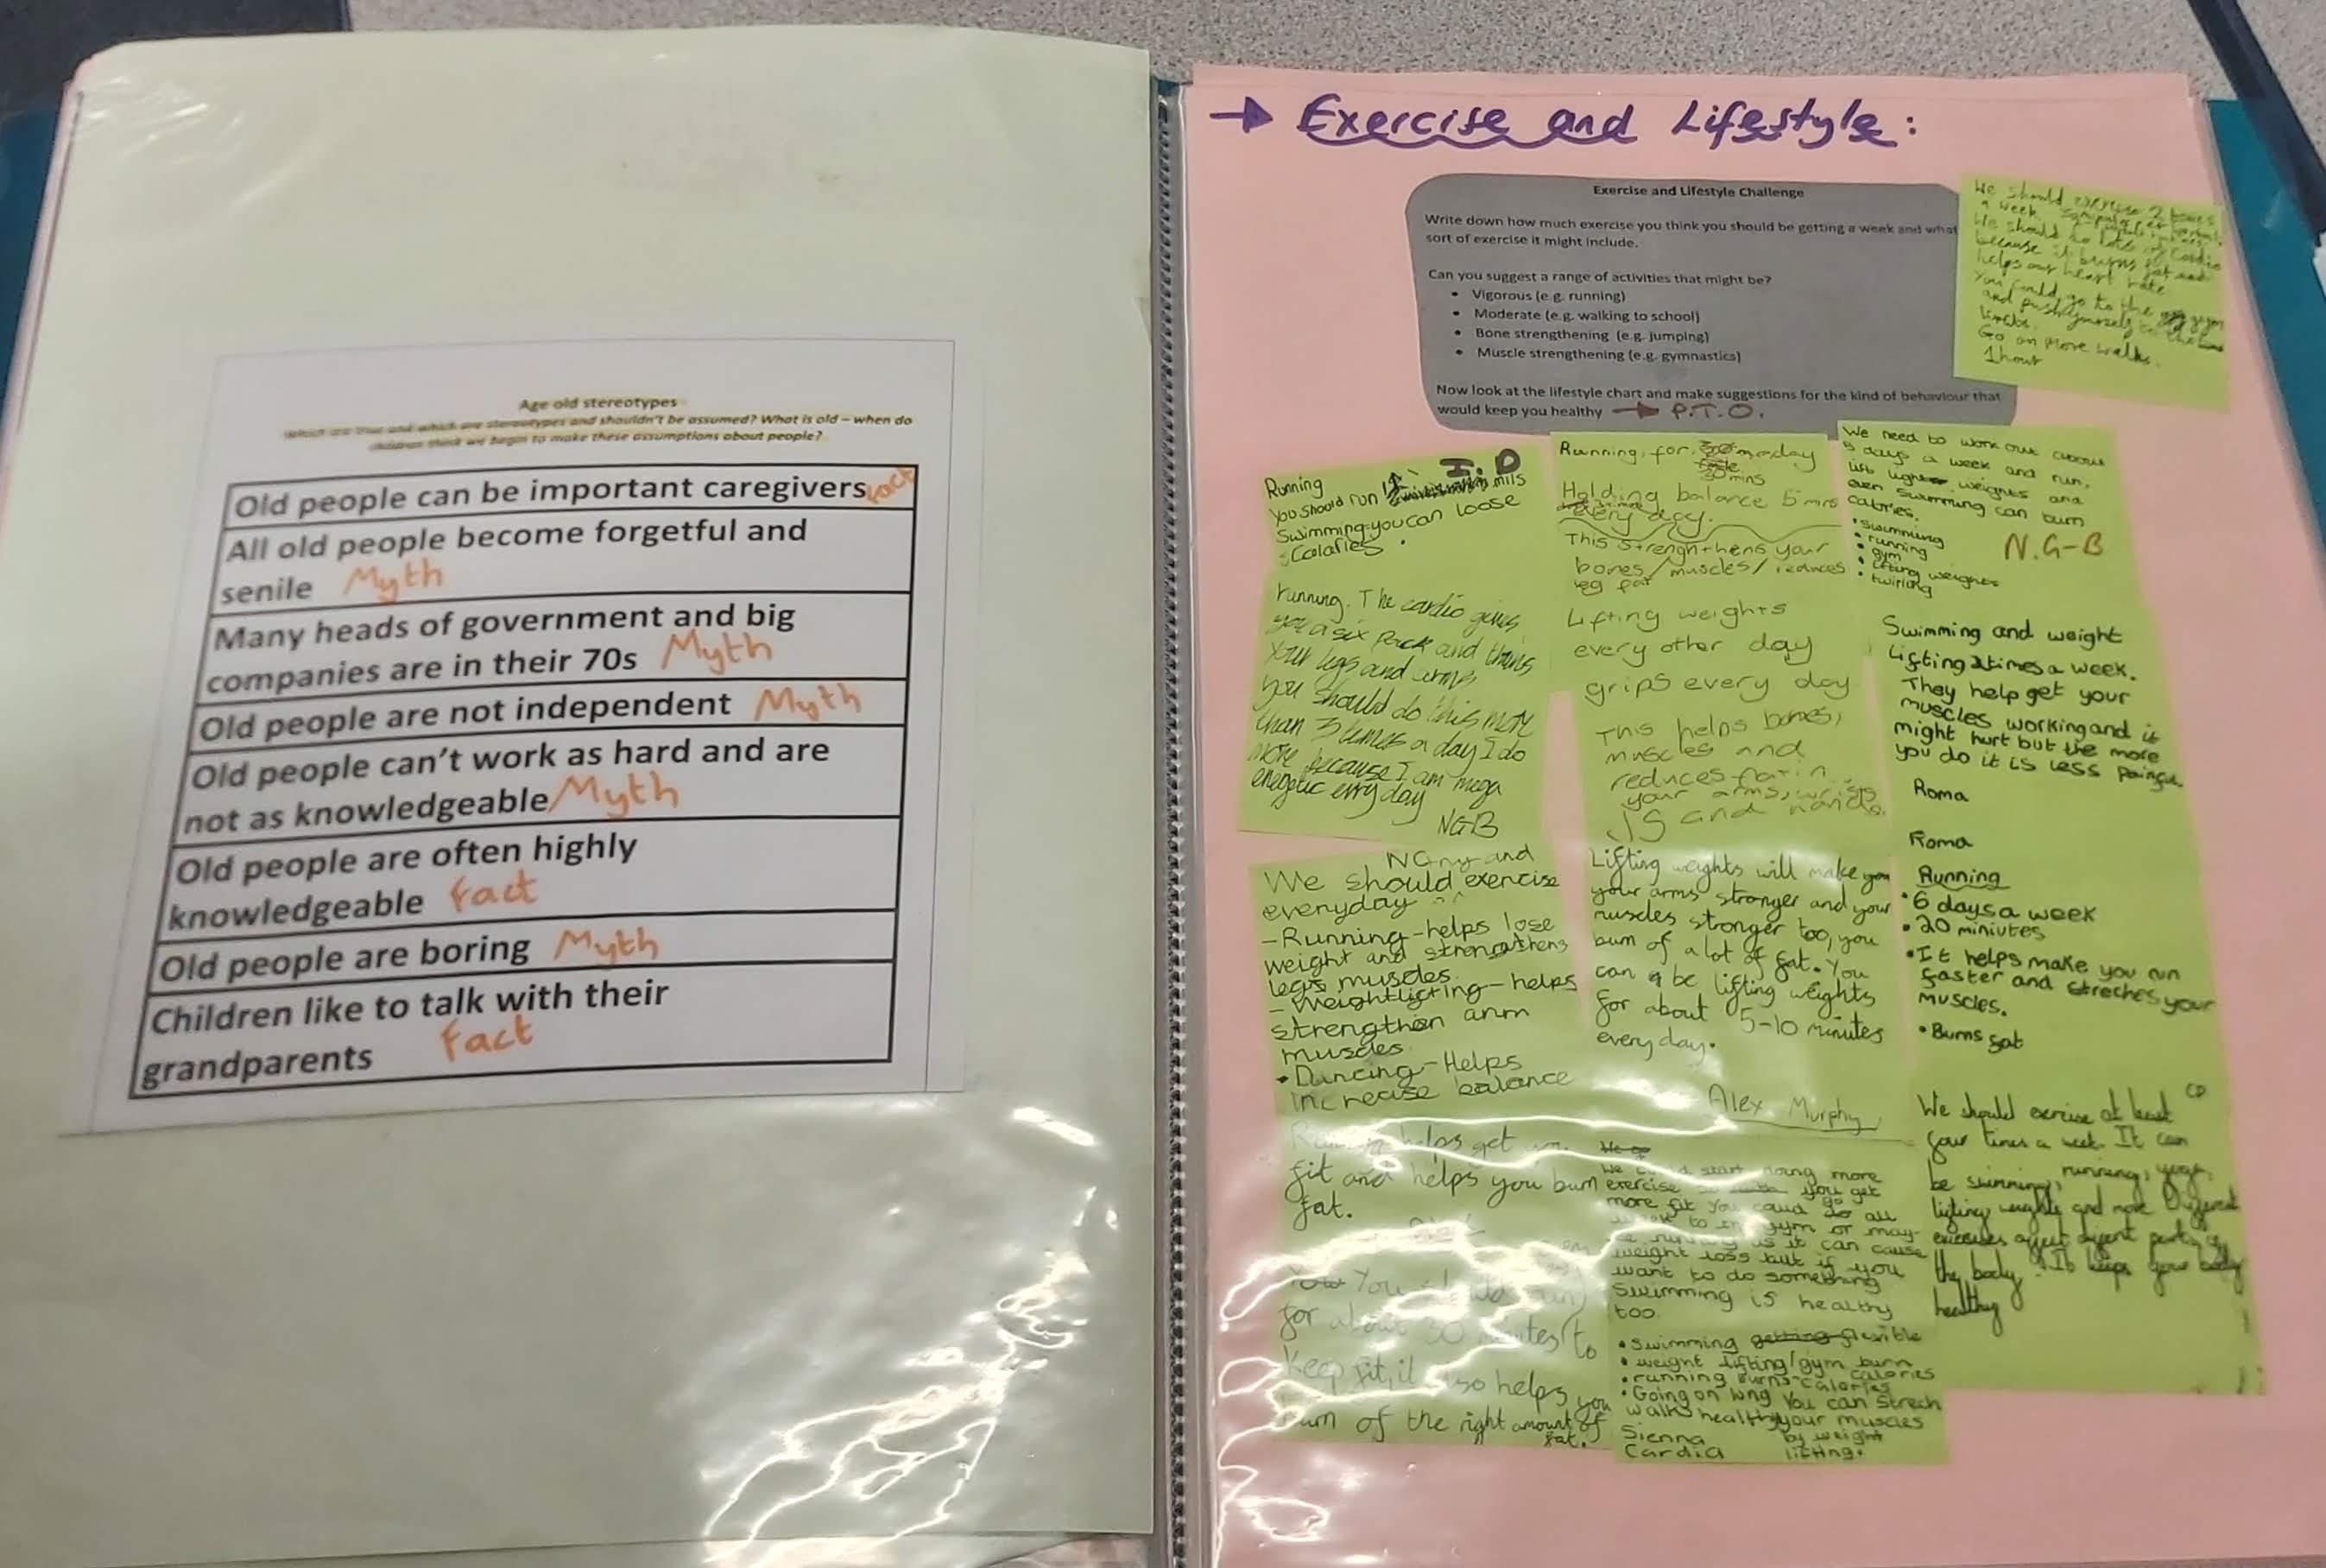 Age old stereotypes
Which are true and which are stereotypes and shouldn't be assumed? What is old – when do
children think we begin to make these assumptions about people?
Old people can be important caregivers Fact
All old people become forgetful and
senile Myth
Many heads of government and big
companies are in their 70s Myth
Old people are not independent Myth
Old people can't work as hard and are
not as knowledgeable Myth
Old people are often highly
knowledgeable Fact
Old people are boring Myth
Children like to talk with their
grandparents Fact
→ Exercise and Lifestyle:
Exercise and Lifestyle Challenge
Write down how much exercise you think you should be getting a week and what
sort of exercise it might include.
Can you suggest a range of activities that might be?
• Vigorous (e.g. running)
• Moderate (e.g. walking to school)
• Bone strengthening (e.g. jumping)
• Muscle strengthening (e.g. gymnastics)
Now look at the lifestyle chart and make suggestions for the kind of behaviour that
would keep you healthy → P.T.O.
We should exercise 2 times
a week
We should do lots of cardio
because it burns fat and
helps our heart rate
You could go to the gym
and push yourself to the
limits.
Go on more walks.
1 hour
I.D
Running
You should run
Swimming you can loose
Calafies.
running. The cardio gives
you a six pack and thins
your legs and arms
you should do this more
than 3 times a day I do
more because I am mega
energetic erry day
NGB
Running for
30 mins
Holding balance 5 mins
every day.
This strenghthens your
bones/muscles/reduces
leg fat
Lifting weights
every other day
grips every day
This helps bones,
muscles and
reduces fat in
your arms, wrists
JS and hands.
We need to work out about
5 days a week and run,
lift weights and
even swimming can burn
calories.
• Swimming
• running
• gym
• lifting weights
• twirling
N.G-B
Swimming and weight
lifting 2 times a week.
They help get your
muscles working and it
might hurt but the more
you do it is less painful
Roma
Roma
Running
• 6 days a week
• 20 miniutes
• It helps make you run
faster and streches your
muscles.
• Burns fat
We should exercise
everyday
- Running - helps lose
weight and strengthens
legs muscles
- Weightlifting - helps
strengthen arm
muscles
• Dancing - Helps
increase balance
Lifting weights will make you
your arms stronger and your
muscles stronger too, you
burn of a lot of fat. You
can be lifting weights
for about 5-10 minutes
every day.
Alex Murphy
CD
We should exercise at least
four times a week. It can
be swimming, running, yoga,
lifting weights and more Different
exercises affect different parts of
the body. It keeps your body
healthy
Running helps get you
fit and helps you burn
fat.
You should run
for about 30 minutes to
keep fit, it also helps you
burn of the right amount of
fat.
We could start doing more
exercise you get
more fit You could go
to the gym or may-
be running as it can cause
weight loss but if you
want to do something
Swimming is healthy
too.
• Swimming flexible
• weight lifting/gym burn
• running Burns calories
• Going on long You can strech
walks healthy your muscles
Sienna by weight
Cardia lifting.